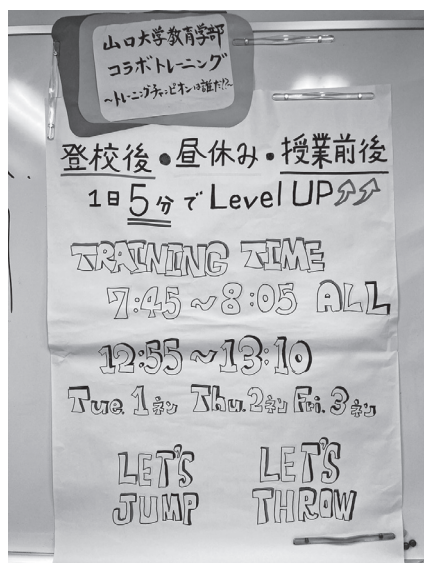 山口大学教育学部
コラボトレーニング
~トレーニングチャンピオンは誰だ!?~
登校後・昼休み・授業前後
1日5分でLevel UP⇧⇧
TRAINING TIME
7:45~8:05 ALL
12:55~13:10
Tue. 1ネン Thu. 2ネン Fri. 3ネン
LET'S LET'S
JUMP THROW